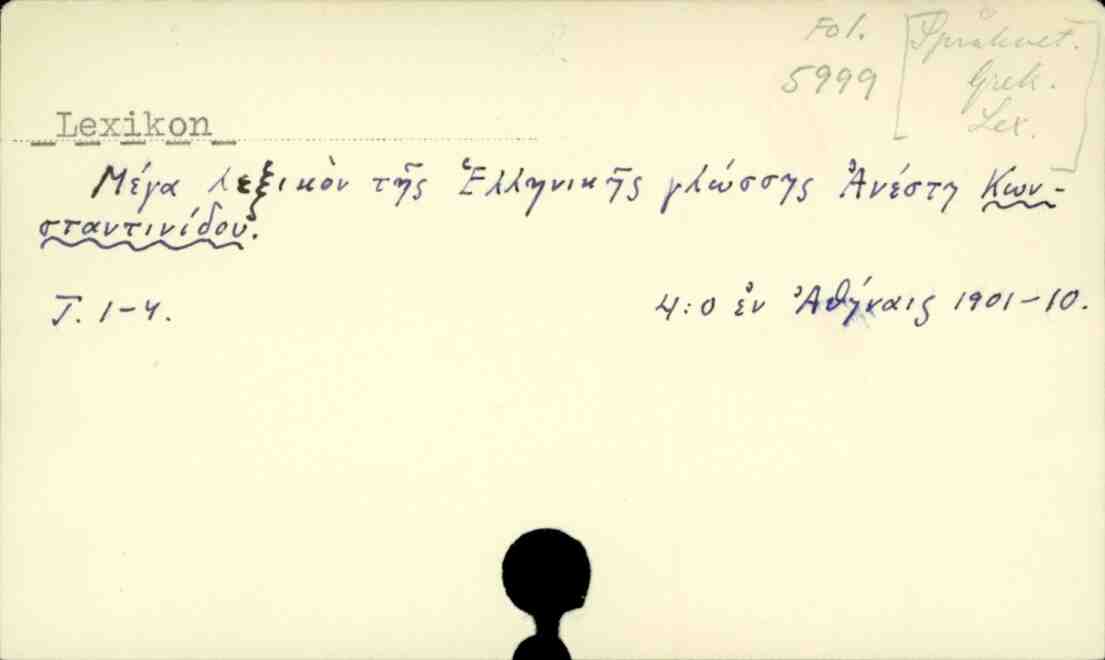 Fol.
5999
[Språkvet.
Grek.
Lex.]
Lexikon
Μέγα λεξικὸν τῆς Ἑλληνικῆς γλώσσης Ἀνέστη Κων-
σταντινίδου.
T. 1-4.
4:o ἐν Ἀθήναις 1901-10.